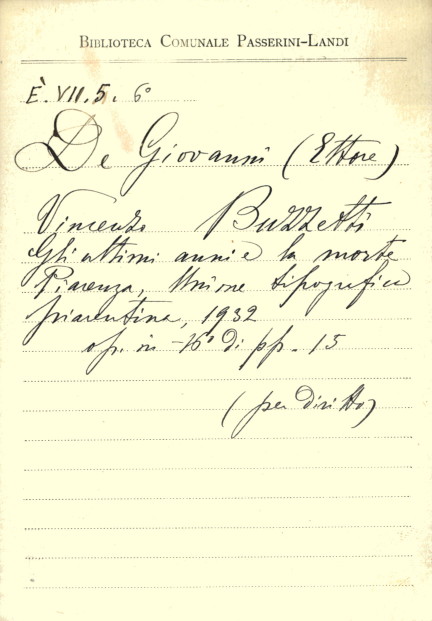 BIBLIOTECA COMUNALE PASSERINI-LANDI
È. VII. 5. 6°
De Giovanni (Ettore)
Vincenzo Buzzetti
Gli ultimi anni e la morte
Piacenza, Unione tipografica
piacentina, 1932
op. in -16° di pp. 15
(per diritto)